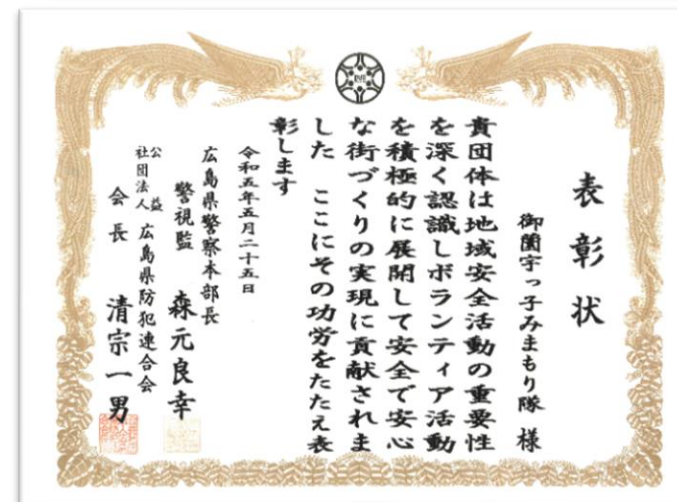 表彰状
御薗宇っ子みまもり隊 様
貴団体は地域安全活動の重要性
を深く認識しボランティア活動
を積極的に展開して安全で安心
な街づくりの実現に貢献されま
した ここにその功労をたたえ表
彰します
令和五年五月二十五日
広島県警察本部長
警視監 森元良幸
公益社団法人 広島県防犯連合会
会長 清宗一男